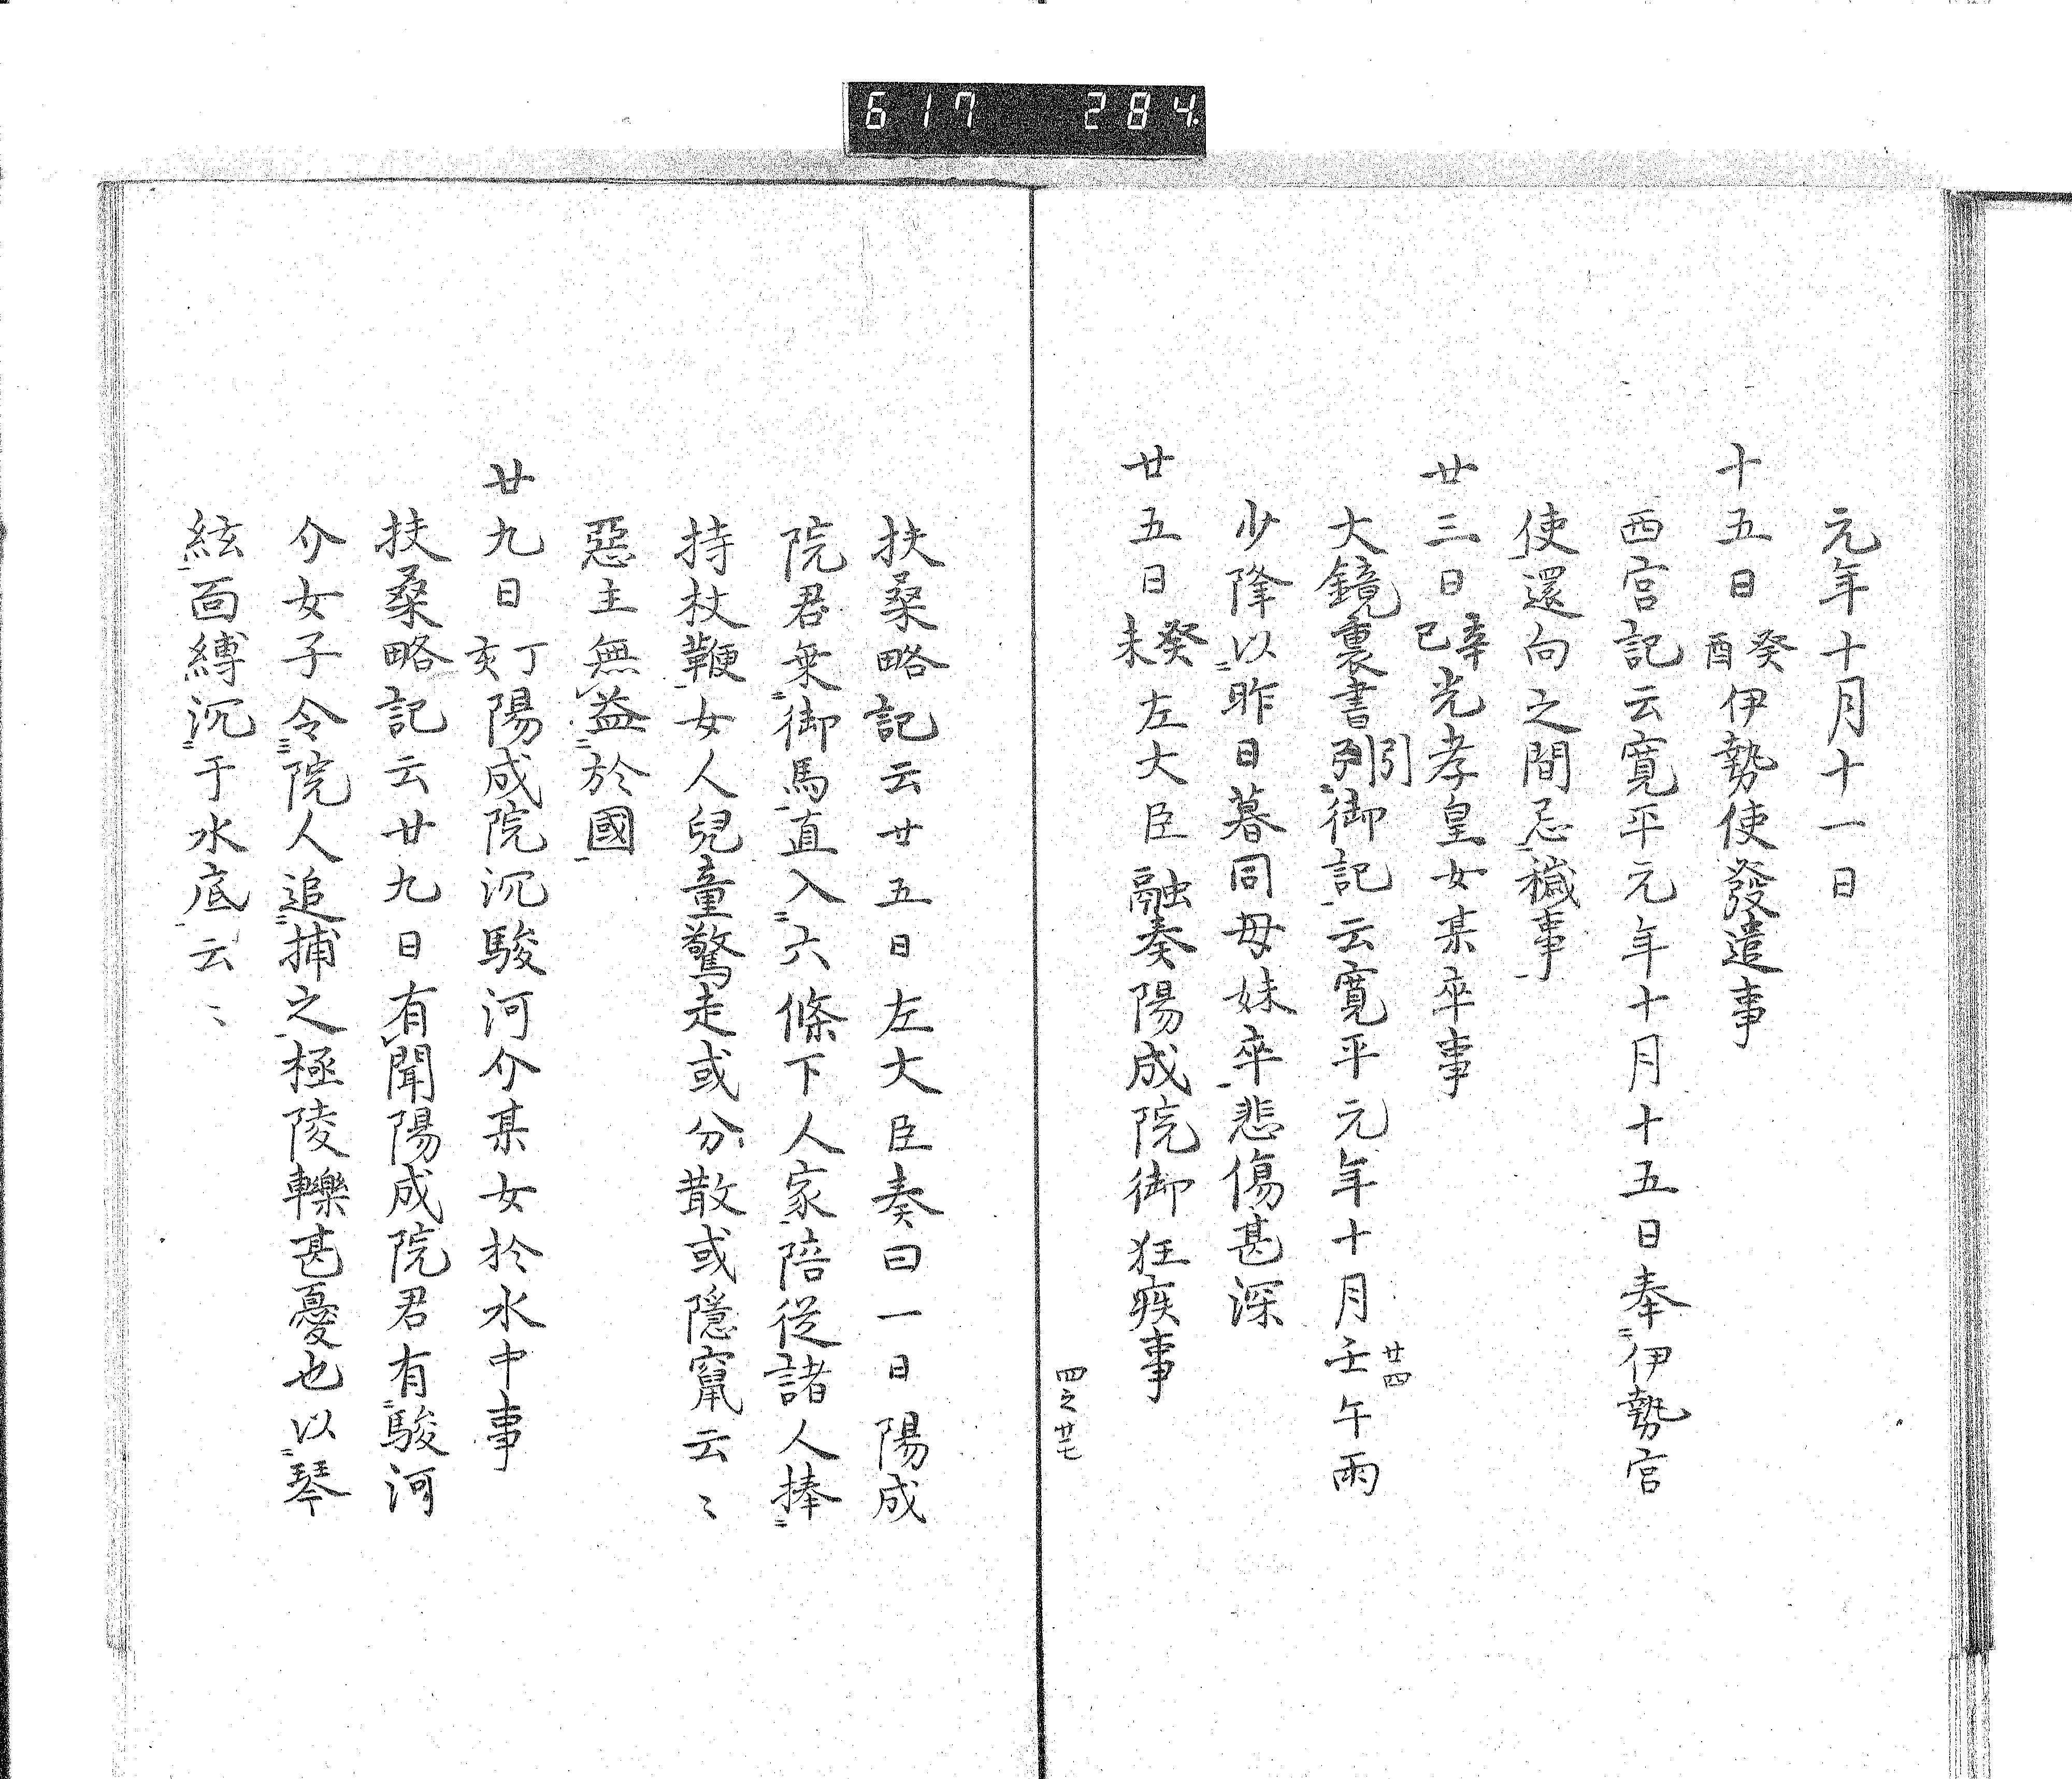 617 284
元年十月十一日
十五日癸酉伊勢使發遣事
西宮記云寛平元年十月十五日奉伊勢宮
使還向之間忌穢事
廿三日辛巳光孝皇女某卒事
大鏡裏書引御記云寛平元年十月壬午雨
引
廿四
少降以昨日暮同母妹卒悲傷甚深
廿五日癸未左大臣融奏陽成院御狂疾事
四之廿七
扶桑略記云廿五日左大臣奏曰一日陽成
院君乗御馬直入六條下人家陪從諸人捧
持杖鞭女人兒童驚走或分散或隱竄云〻
惡主無益於國
廿九日丁亥陽成院沉駿河介某女於水中事
扶桑略記云廿九日有聞陽成院君有駿河
介女子令院人追捕之極陵轢甚憂也以琴
絃面縛沉于水底云〻